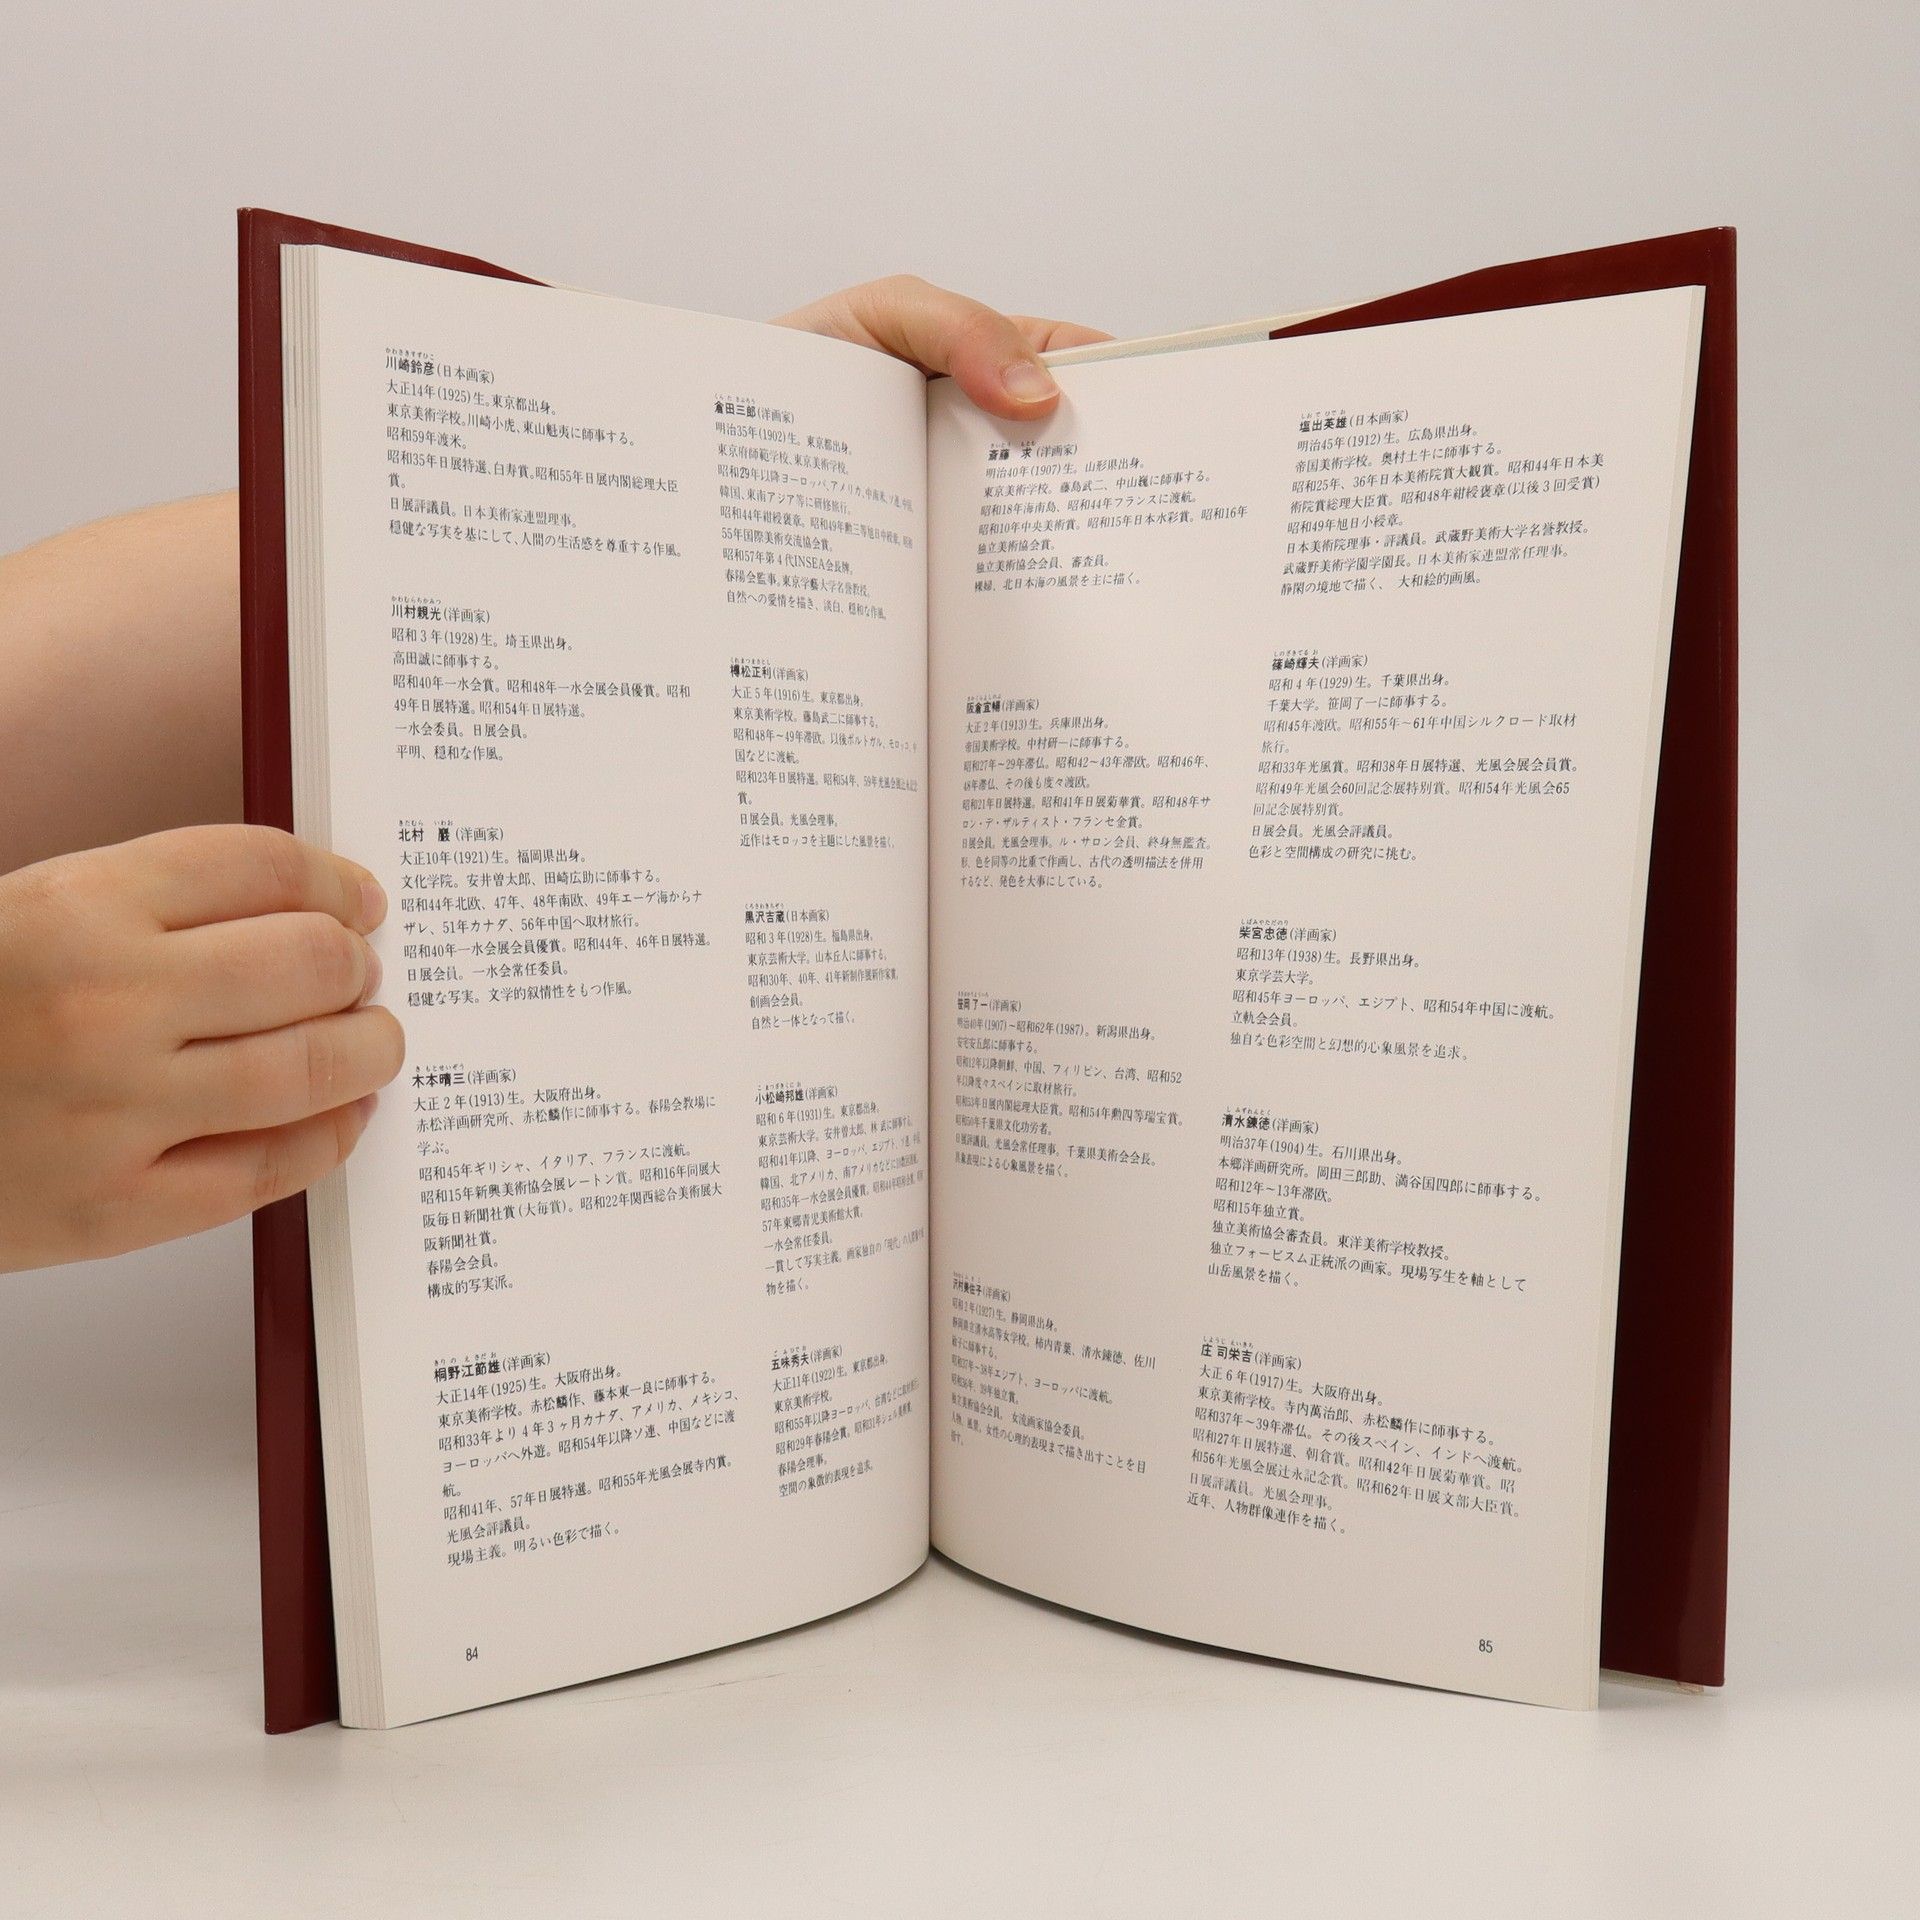 かわさきすずひこ
川崎鈴彦(日本画家)
大正14年(1925)生。東京都出身。
東京美術学校。川崎小虎、東山魁夷に師事する。
昭和59年渡米。
昭和35年日展特選、白寿賞。昭和55年日展内閣総理大臣
賞。
日展評議員。日本美術家連盟理事。
穏健な写実を基にして、人間の生活感を尊重する作風。
かわむらちかみつ
川村親光(洋画家)
昭和3年(1928)生。埼玉県出身。
高田誠に師事する。
昭和40年一水会賞。昭和48年一水会展会員優賞。昭和
49年日展特選。昭和54年日展特選。
一水会委員。日展会員。
平明、穏和な作風。
きたむら いわお
北村 巖(洋画家)
大正10年(1921)生。福岡県出身。
文化学院。安井曽太郎、田崎広助に師事する。
昭和44年北欧、47年、48年南欧、49年エーゲ海からナ
ザレ、51年カナダ、56年中国へ取材旅行。
昭和40年一水会展会員優賞。昭和44年、46年日展特選。
日展会員。一水会常任委員。
穏健な写実。文学的叙情性をもつ作風。
きもとせいぞう
木本晴三(洋画家)
大正2年(1913)生。大阪府出身。
赤松洋画研究所、赤松麟作に師事する。春陽会教場に
学ぶ。
昭和45年ギリシャ、イタリア、フランスに渡航。
昭和15年新興美術協会展レートン賞。昭和16年同展大
阪毎日新聞社賞(大毎賞)。昭和22年関西総合美術展大
阪新聞社賞。
春陽会会員。
構成的写実派。
きりのえさだお
桐野江節雄(洋画家)
大正14年(1925)生。大阪府出身。
東京美術学校。赤松麟作、藤本東一良に師事する。
昭和33年より4年3ヶ月カナダ、アメリカ、メキシコ、
ヨーロッパへ外遊。昭和54年以降ソ連、中国などに渡
航。
昭和41年、57年日展特選。昭和55年光風会展寺内賞。
光風会評議員。
現場主義。明るい色彩で描く。
くらたさぶろう
倉田三郎(洋画家)
明治35年(1902)生。東京都出身。
東京府師範学校、東京美術学校。
昭和29年以降ヨーロッパ、アメリカ、中南米、ソ連、中国、
韓国、東南アジア等に研修旅行。
昭和44年紺綬褒章。昭和49年勲三等旭日中綬章。昭和
55年国際美術交流協会賞。
昭和57年第4代INSEA会長牌。
春陽会監事。東京学藝大学名誉教授。
自然への愛情を描き、淡白、穏和な作風。
くれまつまさとし
樽松正利(洋画家)
大正5年(1916)生。東京都出身。
東京美術学校。藤島武二に師事する。
昭和48年～49年滞欧。以後ポルトガル、モロッコ、中
国などに渡航。
昭和23年日展特選。昭和54年、59年光風会展辻永記念
賞。
日展会員。光風会理事。
近作はモロッコを主題にした風景を描く。
くろさわきちぞう
黒沢吉蔵(日本画家)
昭和3年(1928)生。福島県出身。
東京芸術大学。山本丘人に師事する。
昭和30年、40年、41年新制作展新作家賞。
創画会会員。
自然と一体となって描く。
こまつざきくにお
小松崎邦雄(洋画家)
昭和6年(1931)生。東京都出身。
東京芸術大学。安井曽太郎、林 武に師事する。
昭和41年以降、ヨーロッパ、エジプト、ソ連、中国、
韓国、北アメリカ、南アメリカなどに
昭和35年一水会展会員優賞。昭和44年昭和会賞。昭和
57年東郷青児美術館大賞。
一水会常任委員。
一貫して写実主義。画家独自の「現代」の
物を描く。
ごみひでお
五味秀夫(洋画家)
大正11年(1922)生。東京都出身。
東京美術学校。
昭和55年以降ヨーロッパ、台湾などに取材旅行。
昭和29年春陽会賞。昭和31年シェル美術賞。
春陽会理事。
空間の象徴的表現を追求。
84
さいとう もとむ
斎藤 求(洋画家)
明治40年(1907)生。山形県出身。
東京美術学校。藤島武二、中山巍に師事する。
昭和18年海南島、昭和44年フランスに渡航。
昭和10年中央美術賞。昭和15年日本水彩賞。昭和16年
独立美術協会賞。
独立美術協会会員、審査員。
裸婦、北日本海の風景を主に描く。
さかくらよしのぶ
阪倉宜暢(洋画家)
大正2年(1913)生。兵庫県出身。
帝国美術学校。中村研一に師事する。
昭和27年～29年滞仏。昭和42～43年滞欧。昭和46年、
48年滞仏、その後も度々渡欧。
昭和21年日展特選。昭和41年日展菊華賞。昭和48年サ
ロン・デ・ザルティスト・フランセ金賞。
日展会員。光風会理事。ル・サロン会員、終身無鑑査。
形、色を同等の比重で作画し、古代の透明描法を併用
するなど、発色を大事にしている。
ささおかりょういち
笹岡了一(洋画家)
明治40年(1907)～昭和62年(1987)。新潟県出身。
安宅安五郎に師事する。
昭和12年以降朝鮮、中国、フィリピン、台湾、昭和52
年以降度々スペインに取材旅行。
昭和53年日展内閣総理大臣賞。昭和54年勲四等瑞宝賞。
昭和50年千葉県文化功労者。
日展評議員。光風会常任理事。千葉県美術会会長。
具象表現による心象風景を描く。
沢村美佐子(洋画家)
昭和2年(1927)生。静岡県出身。
静岡県立清水高等女学校。柿内青葉、清水錬徳、佐川
敏子に師事する。
昭和37年～38年エジプト、ヨーロッパに渡航。
昭和36年、39年独立賞。
独立美術協会会員。女流画家協会委員。
人物、風景。女性の心理的表現まで描き出すことを目
指す。
しおでひでお
塩出英雄(日本画家)
明治45年(1912)生。広島県出身。
帝国美術学校。奥村土牛に師事する。
昭和25年、36年日本美術院賞大観賞。昭和44年日本美
術院賞総理大臣賞。昭和48年紺綬褒章(以後3回受賞)
昭和49年旭日小綬章。
日本美術院理事・評議員。武蔵野美術大学名誉教授。
武蔵野美術学園学園長。日本美術家連盟常任理事。
静閑の境地で描く、 大和絵的画風。
しのざきてるお
篠崎輝夫(洋画家)
昭和4年(1929)生。千葉県出身。
千葉大学。笹岡了一に師事する。
昭和45年渡欧。昭和55年～61年中国シルクロード取材
旅行。
昭和33年光風賞。昭和38年日展特選、光風会展会員賞。
昭和49年光風会60回記念展特別賞。昭和54年光風会65
回記念展特別賞。
日展会員。光風会評議員。
色彩と空間構成の研究に挑む。
しばみやただのり
柴宮忠徳(洋画家)
昭和13年(1938)生。長野県出身。
東京学芸大学。
昭和45年ヨーロッパ、エジプト、昭和54年中国に渡航。
立軌会会員。
独自な色彩空間と幻想的心象風景を追求。
しみずれんとく
清水錬徳(洋画家)
明治37年(1904)生。石川県出身。
本郷洋画研究所。岡田三郎助、満谷国四郎に師事する。
昭和12年～13年滞欧。
昭和15年独立賞。
独立美術協会審査員。東洋美術学校教授。
独立フォービスム正統派の画家。現場写生を軸として
山岳風景を描く。
しょうじ えいきち
庄司栄吉(洋画家)
大正6年(1917)生。大阪府出身。
東京美術学校。寺内萬治郎、赤松麟作に師事する。
昭和37年～39年滞仏。その後スペイン、インドへ渡航。
昭和27年日展特選、朝倉賞。昭和42年日展菊華賞。昭
和56年光風会展辻永記念賞。昭和62年日展文部大臣賞。
日展評議員。光風会理事。
近年、人物群像連作を描く。
85